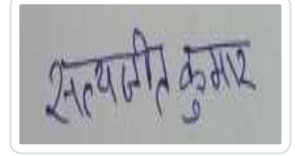 सत्यजीत कुमार